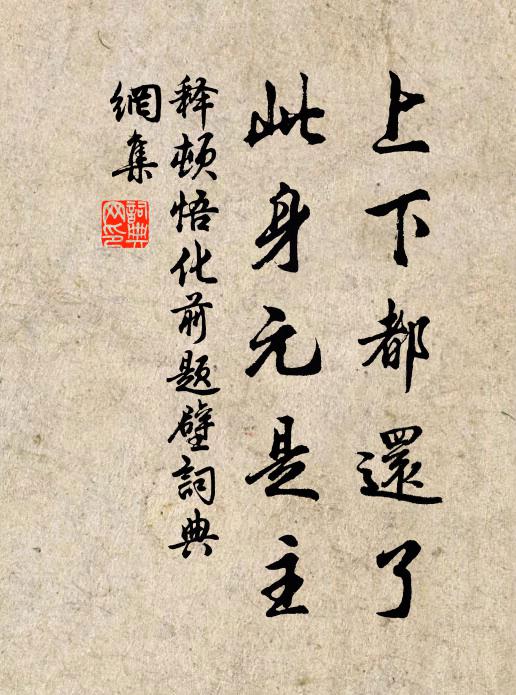 上下都還了
此身元是主
释頓悟化前题壁詞典
網集
詞典网印